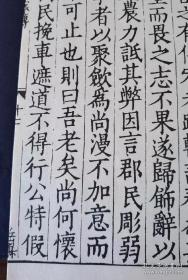 而畏之志不果遂歸飾辭以
農力詆其弊因言郡民彫弱
者以聚歛為尚漫不加意而
可止也則曰吾老矣尚何懷
民挽車遮道不得行公特假